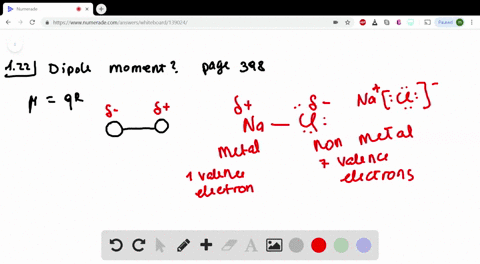 Numerade
https://www.numerade.com/answers/whiteboard/139024/
Paused
1.22 Dipole moment? page 398
μ = qR
δ- δ+
δ+ δ-
Na — Cl
Na+ [Cl]-
metal
non metal
1 valence electron
7 valence electrons